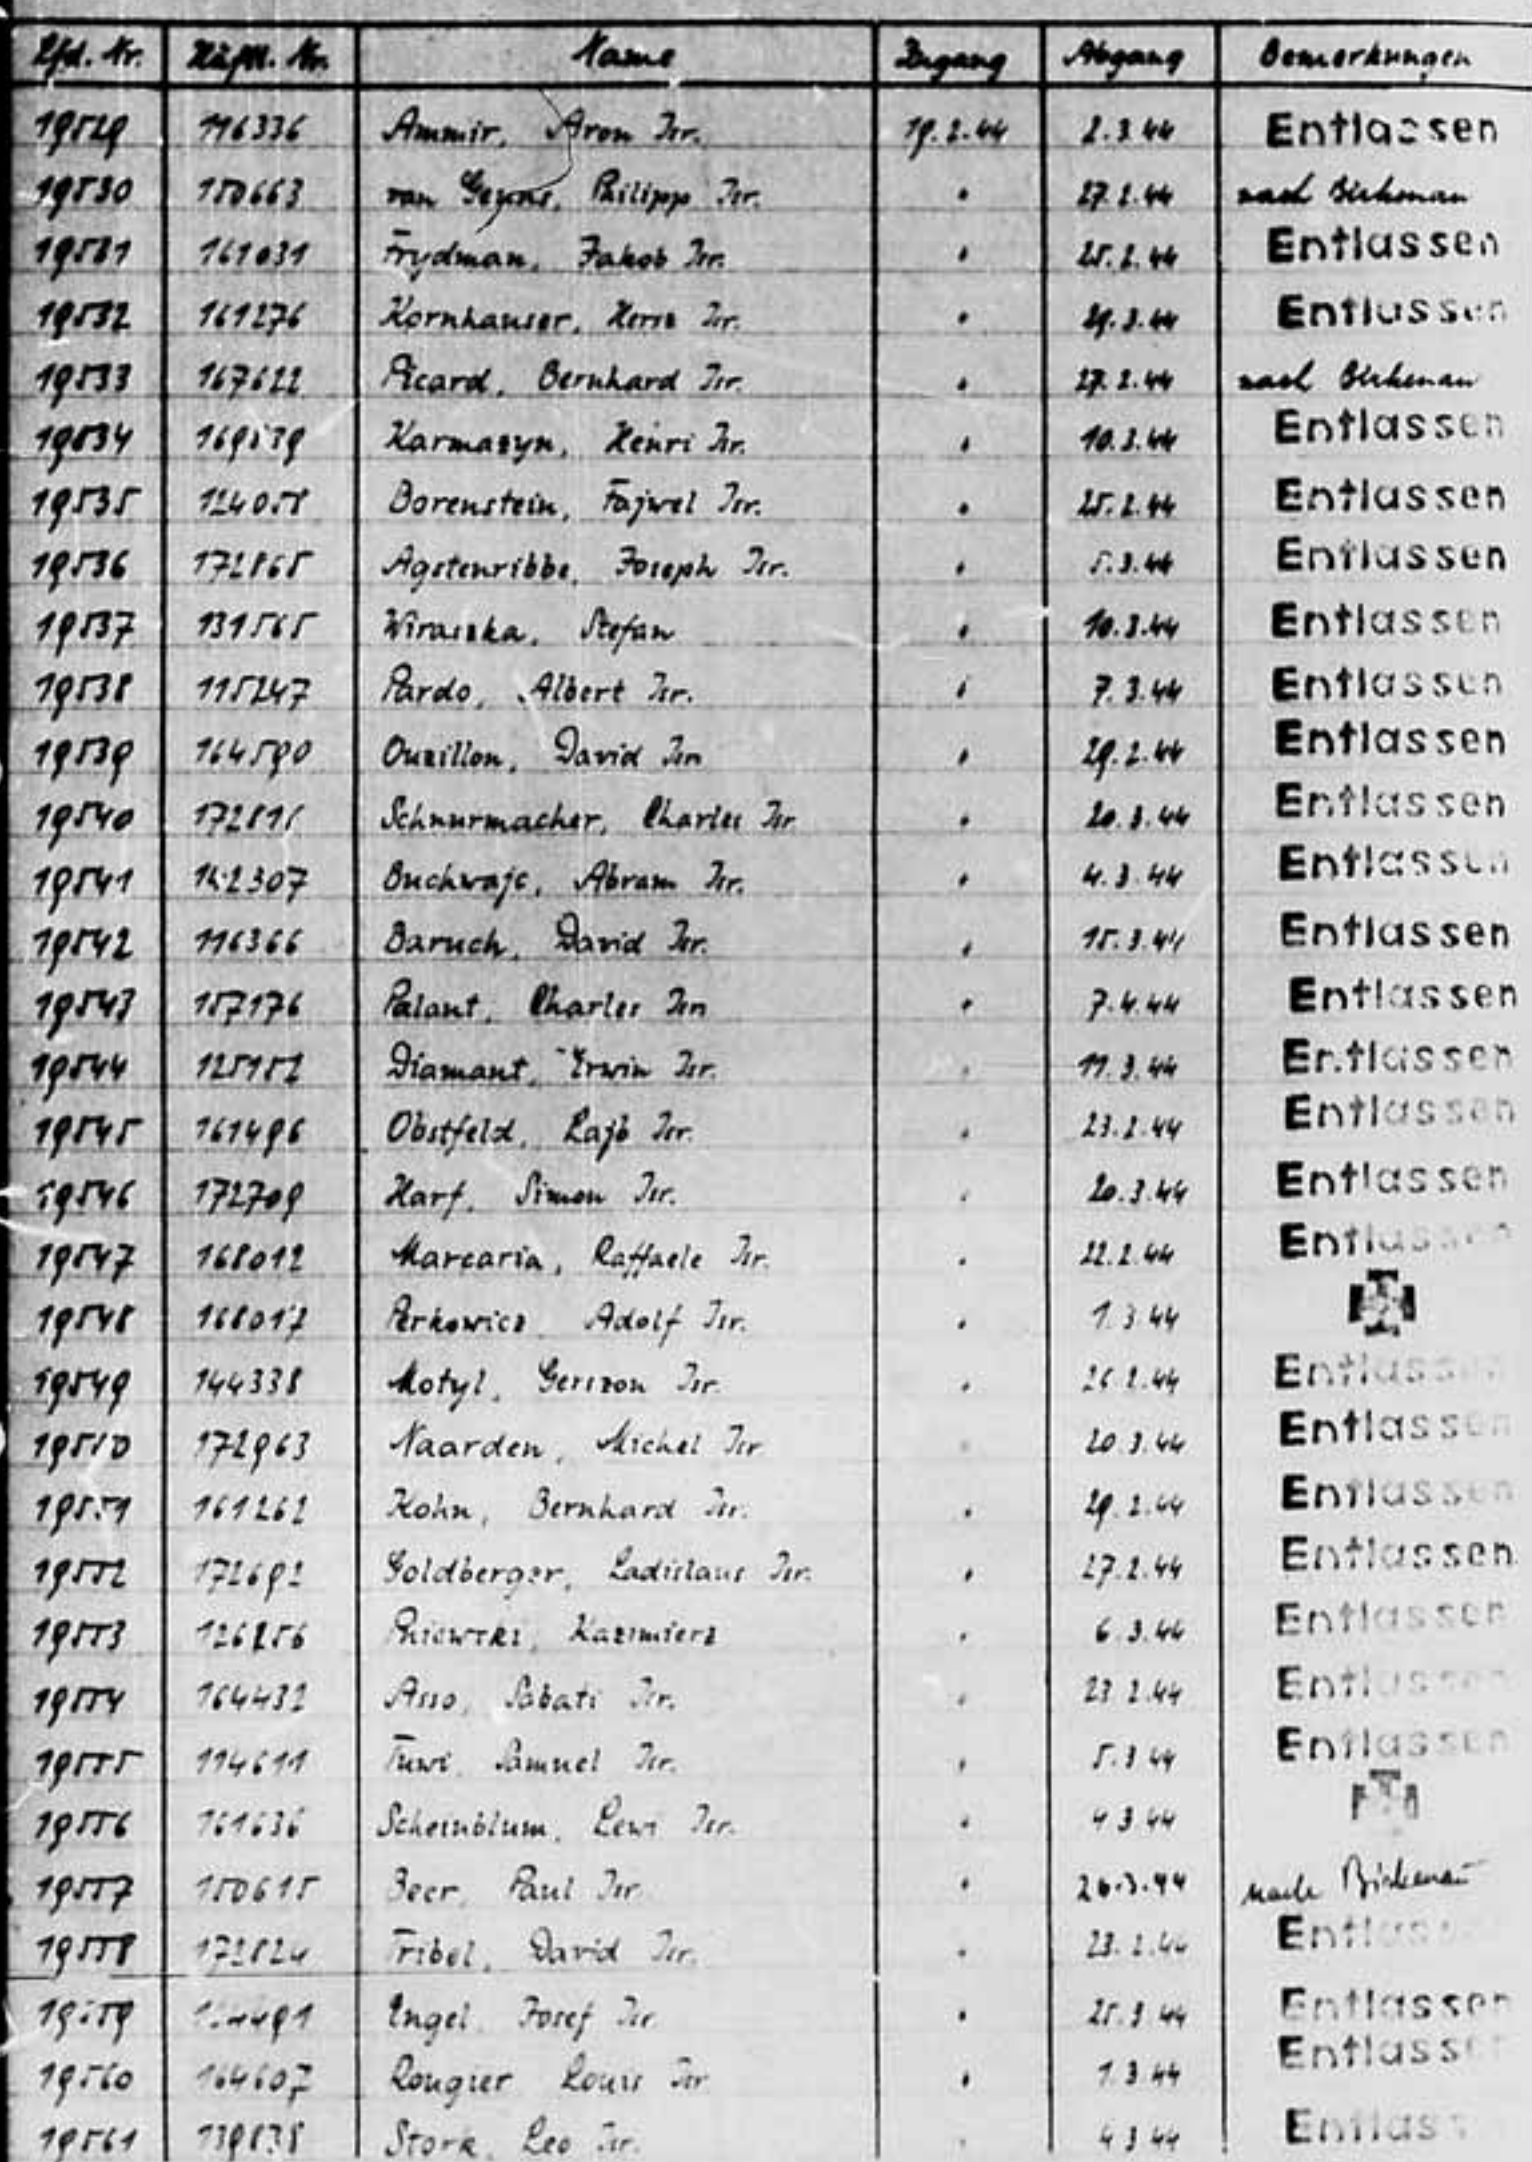 Lfd. Nr. Häftl. Nr. Name Zugang Abgang Bemerkungen
19529 116336 Ammir, Aron Isr. 19.2.44 2.3.44 Entlassen
19530 150663 van Philipp Isr. " 27.2.44 nach Birkenau
19531 161031 Frydman, Jakob Isr. " 25.2.44 Entlassen
19532 161276 Kornhauser, Hersz Isr. " 29.3.44 Entlassen
19533 167622 Picard, Bernhard Isr. " 27.2.44 nach Birkenau
19534 169539 Karmazyn, Henri Isr. " 10.3.44 Entlassen
19535 124058 Borenstein, Fajwel Isr. " 25.2.44 Entlassen
19536 172865 Agstenribbe, Joseph Isr. " 5.3.44 Entlassen
19537 131565 Wiraszka, Stefan " 10.3.44 Entlassen
19538 115247 Pardo, Albert Isr. " 7.3.44 Entlassen
19539 164590 Ouzillon, David Isr. " 29.2.44 Entlassen
19540 Schnurmacher, Charles Isr. " 20.3.44 Entlassen
19541 142307 Buchwajc, Abram Isr. " 4.3.44 Entlassen
19542 116366 Baruch, David Isr. " 15.3.44 Entlassen
19543 157176 Palant, Charles Isr. " 7.4.44 Entlassen
19544 125152 Diamant, Erwin Isr. " 11.3.44 Entlassen
19545 161496 Obstfeld, Lajb Isr. " 23.2.44 Entlassen
19546 172709 Harf, Simon Isr. " 20.3.44 Entlassen
19547 168012 Marcaria, Raffaele Isr. " 22.2.44 Entlassen
19548 168017 Perkowicz Adolf Isr. " 1.3.44
19549 144338 Motyl, Gerszon Isr. " 26.2.44 Entlassen
19550 172963 Naarden, Michel Isr. " 20.3.44 Entlassen
19551 161262 Kohn, Bernhard Isr. " 29.2.44 Entlassen
19552 172692 Goldberger, Ladislaus Isr. " 27.2.44 Entlassen
19553 126256 Pniewski, Kazimierz " 6.3.44 Entlassen
19554 164432 Asso, Sabati Isr. " 23.2.44 Entlassen
19555 114611 Samuel Isr. " 5.3.44 Entlassen
19556 161636 Scheinblum, Lewi Isr. " 4.3.44
19557 150615 Beer, Paul Isr. " 26.3.44 nach Birkenau
19558 172824 Fribel, David Isr. " 23.2.44 Entlassen
19559 Engel, Josef Isr. " 25.3.44 Entlassen
19560 164607 Rougier Louis Isr. " 1.3.44 Entlassen
19561 139838 Stork, Leo Isr. " 4.3.44 Entlassen